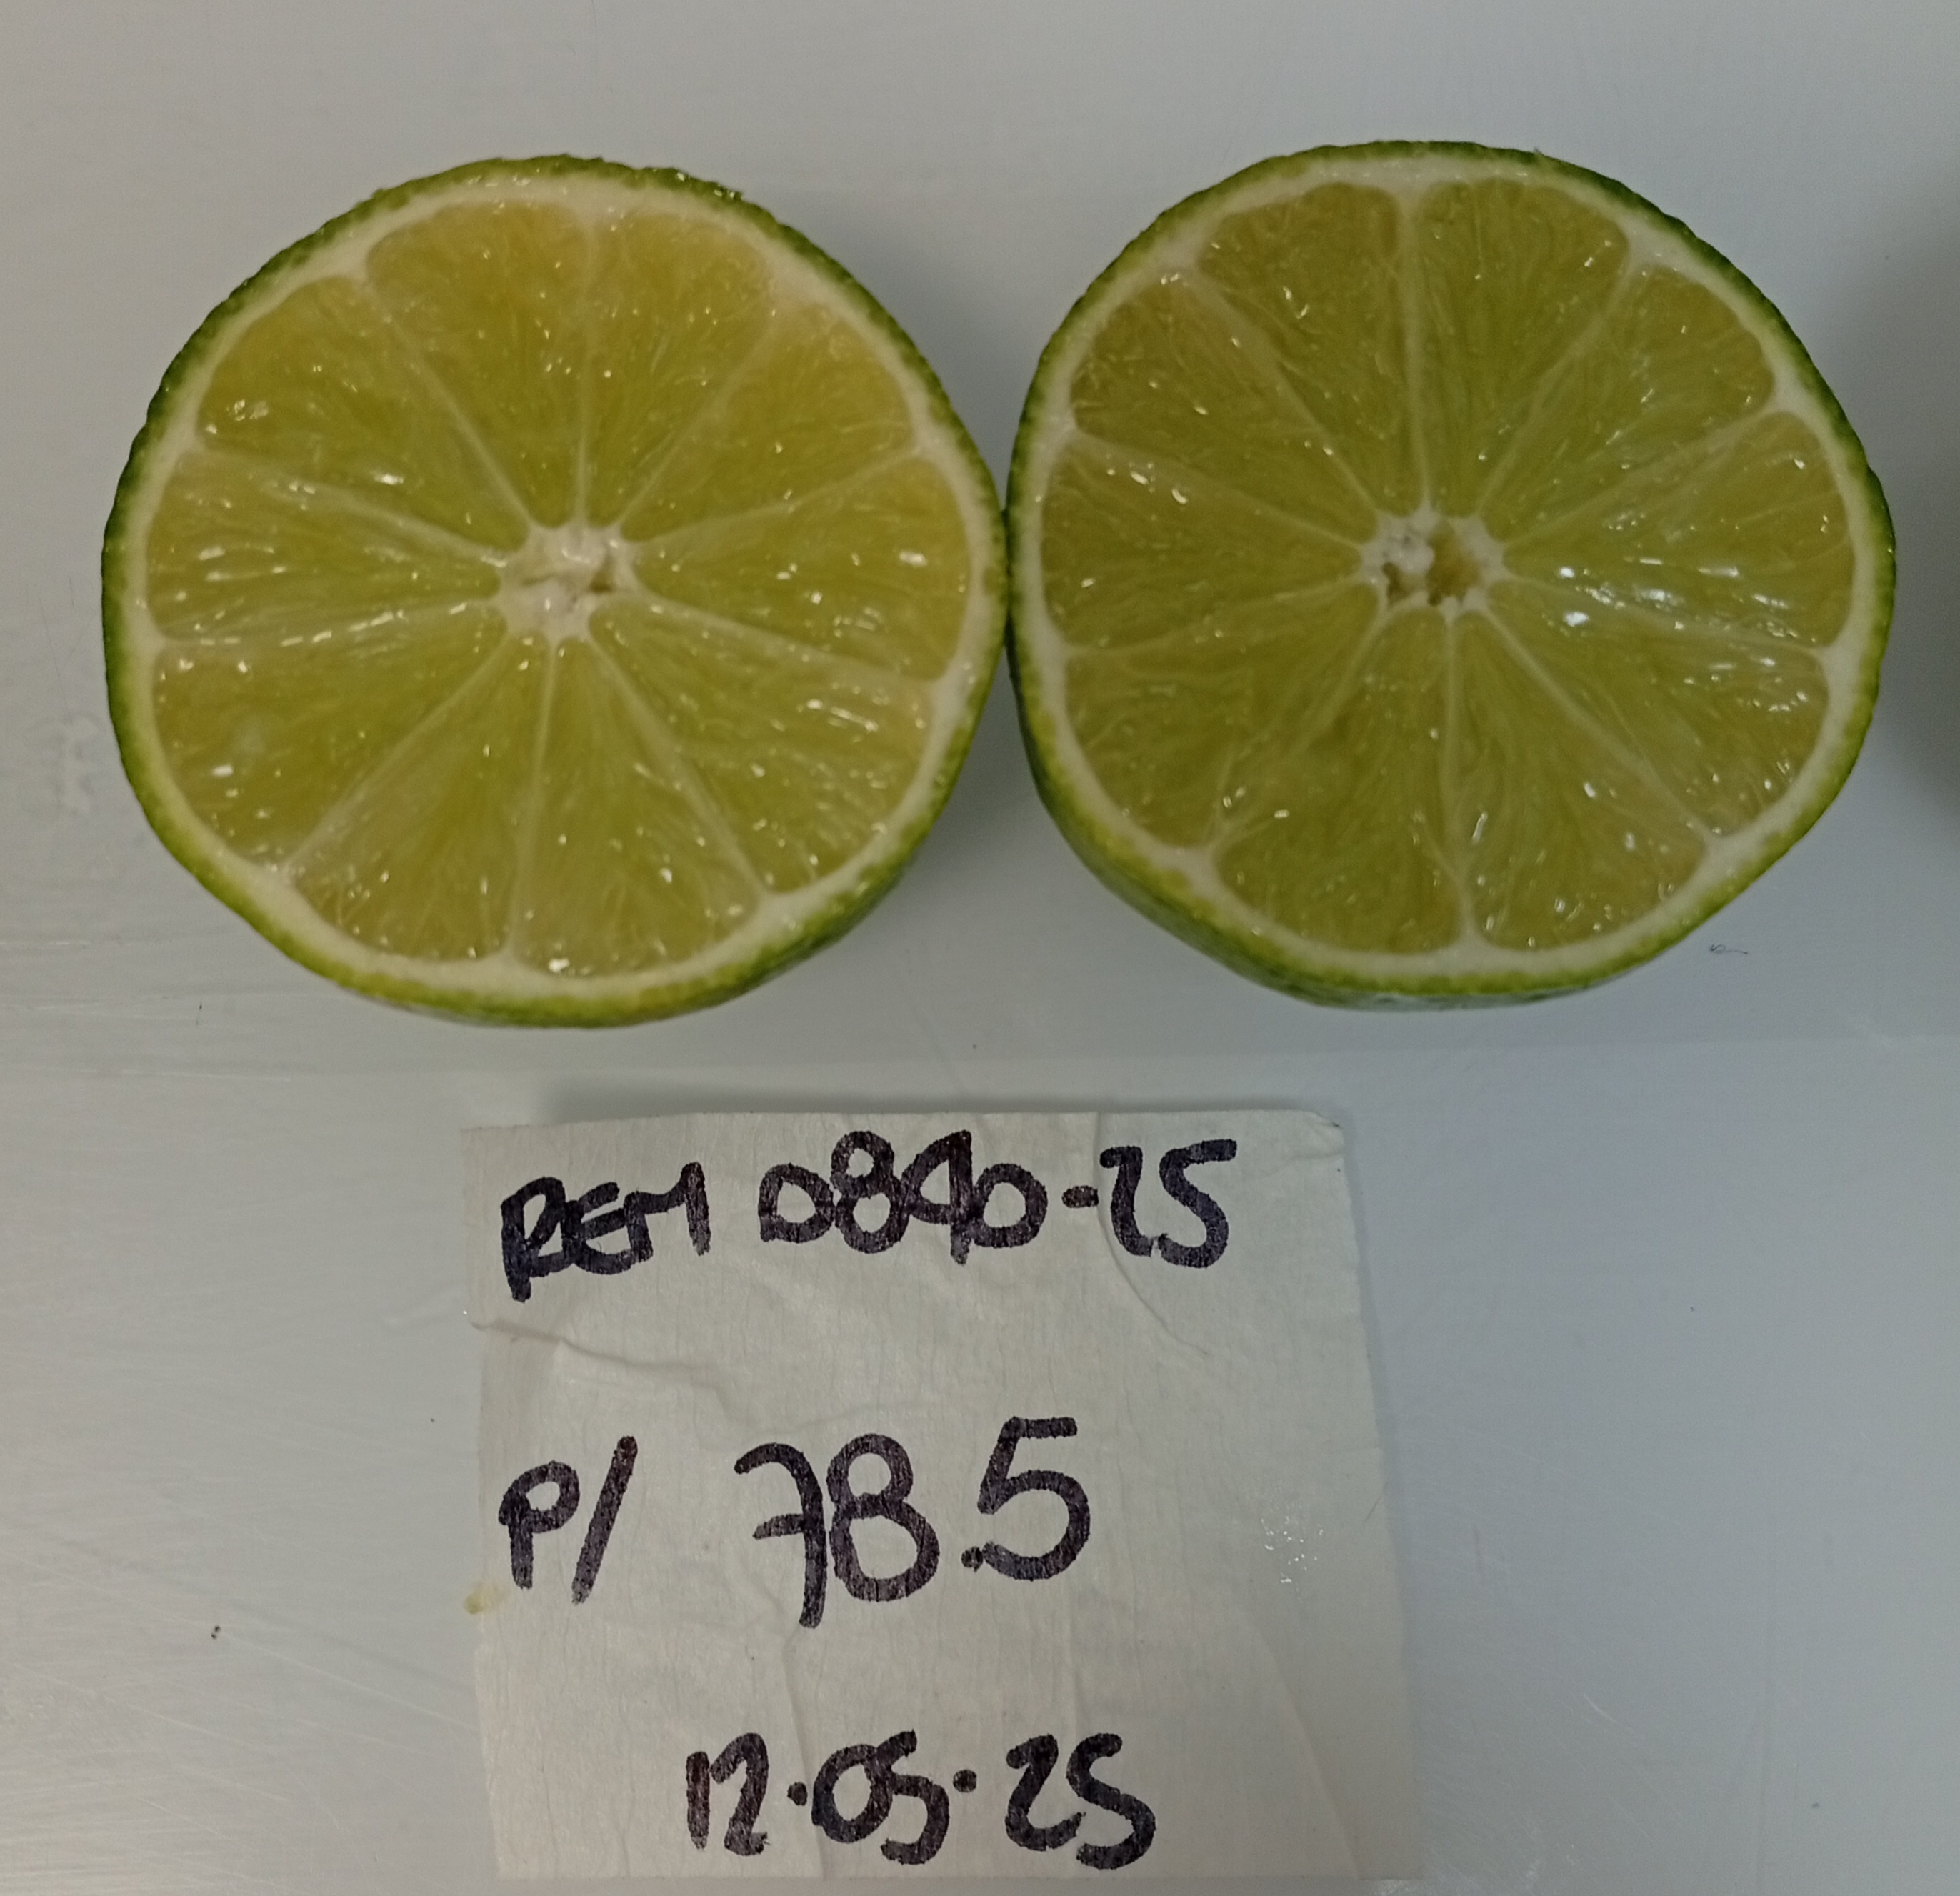 REM 0840-25
P/ 78.5
12.05.25